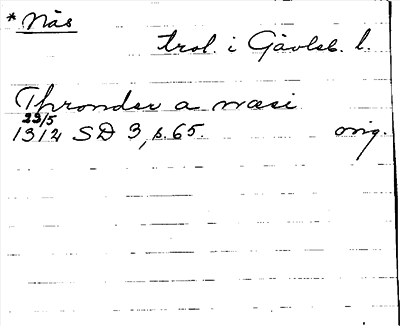 * Näs
trol. i Gävleb. l.
Thronder a næsi
23/5
1312 SD 3, s. 65. orig.